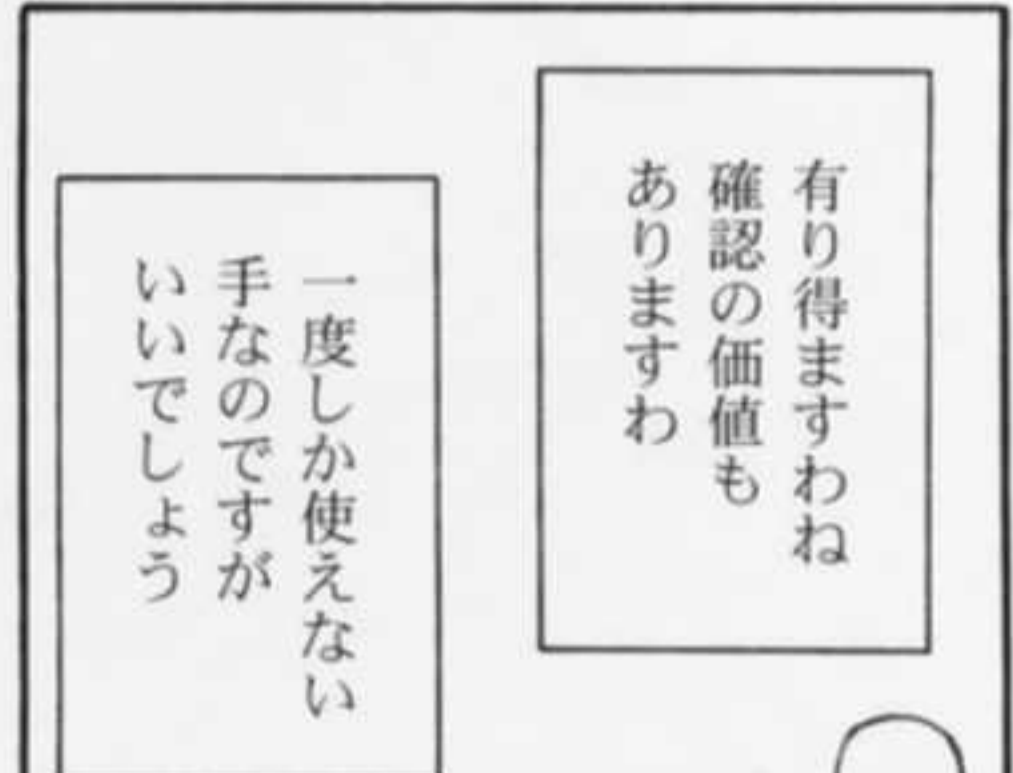 有り得ますわね
確認の価値も
ありますわ
一度しか使えない
手なのですが
いいでしょう